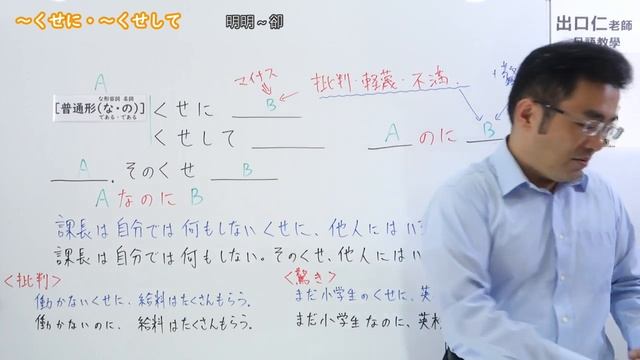 ～くせに・～くせして
明明～卻
出口仁老師
日語教學
A
マイナス
批判・軽蔑・不満.
な形容詞 名詞
[普通形(な・の)]
である・である
くせに B
くせして
A のに B
A . そのくせ B
A なのに B
課長は自分では何もしないくせに、他人にはい
課長は自分では何もしない。そのくせ、他人にはい
<批判>
働かないくせに、給料はたくさんもらう。
働かないのに、給料はたくさんもらう。
<驚き>
まだ小学生のくせに、英
まだ小学生なのに、英